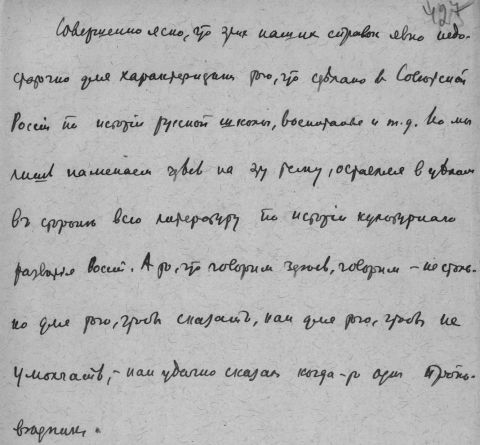 427
Совершенно ясно, что этих наших справок явно недо-
статочно для характеристики того, что сделано в Советской
России по исторіи русской школы, воспитания и т.д. Но мы
лишь намекаем здесь на эту тему, оставляя в
въ сторонѣ всю литературу по исторіи культурнаго
развитія Россіи. А то, что говорим здесь, говорим – не столь-
ко для того, чтобы сказать, как для того, чтобы не
умолчать, – как удачно сказал когда-то один